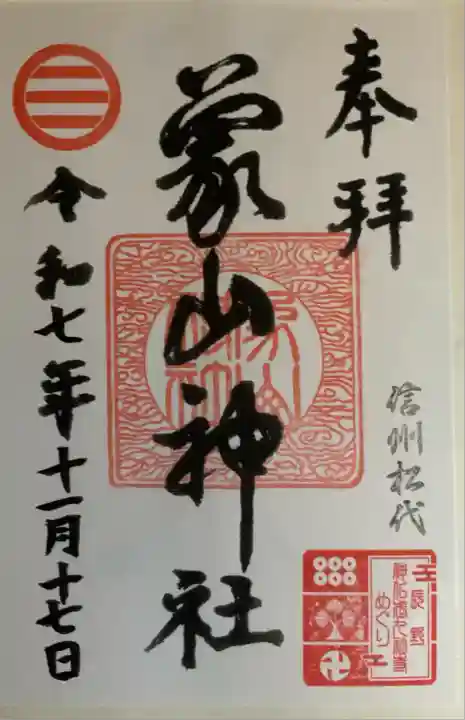 奉拝
信州松代
象山神社
令和七年十一月十七日
めぐり